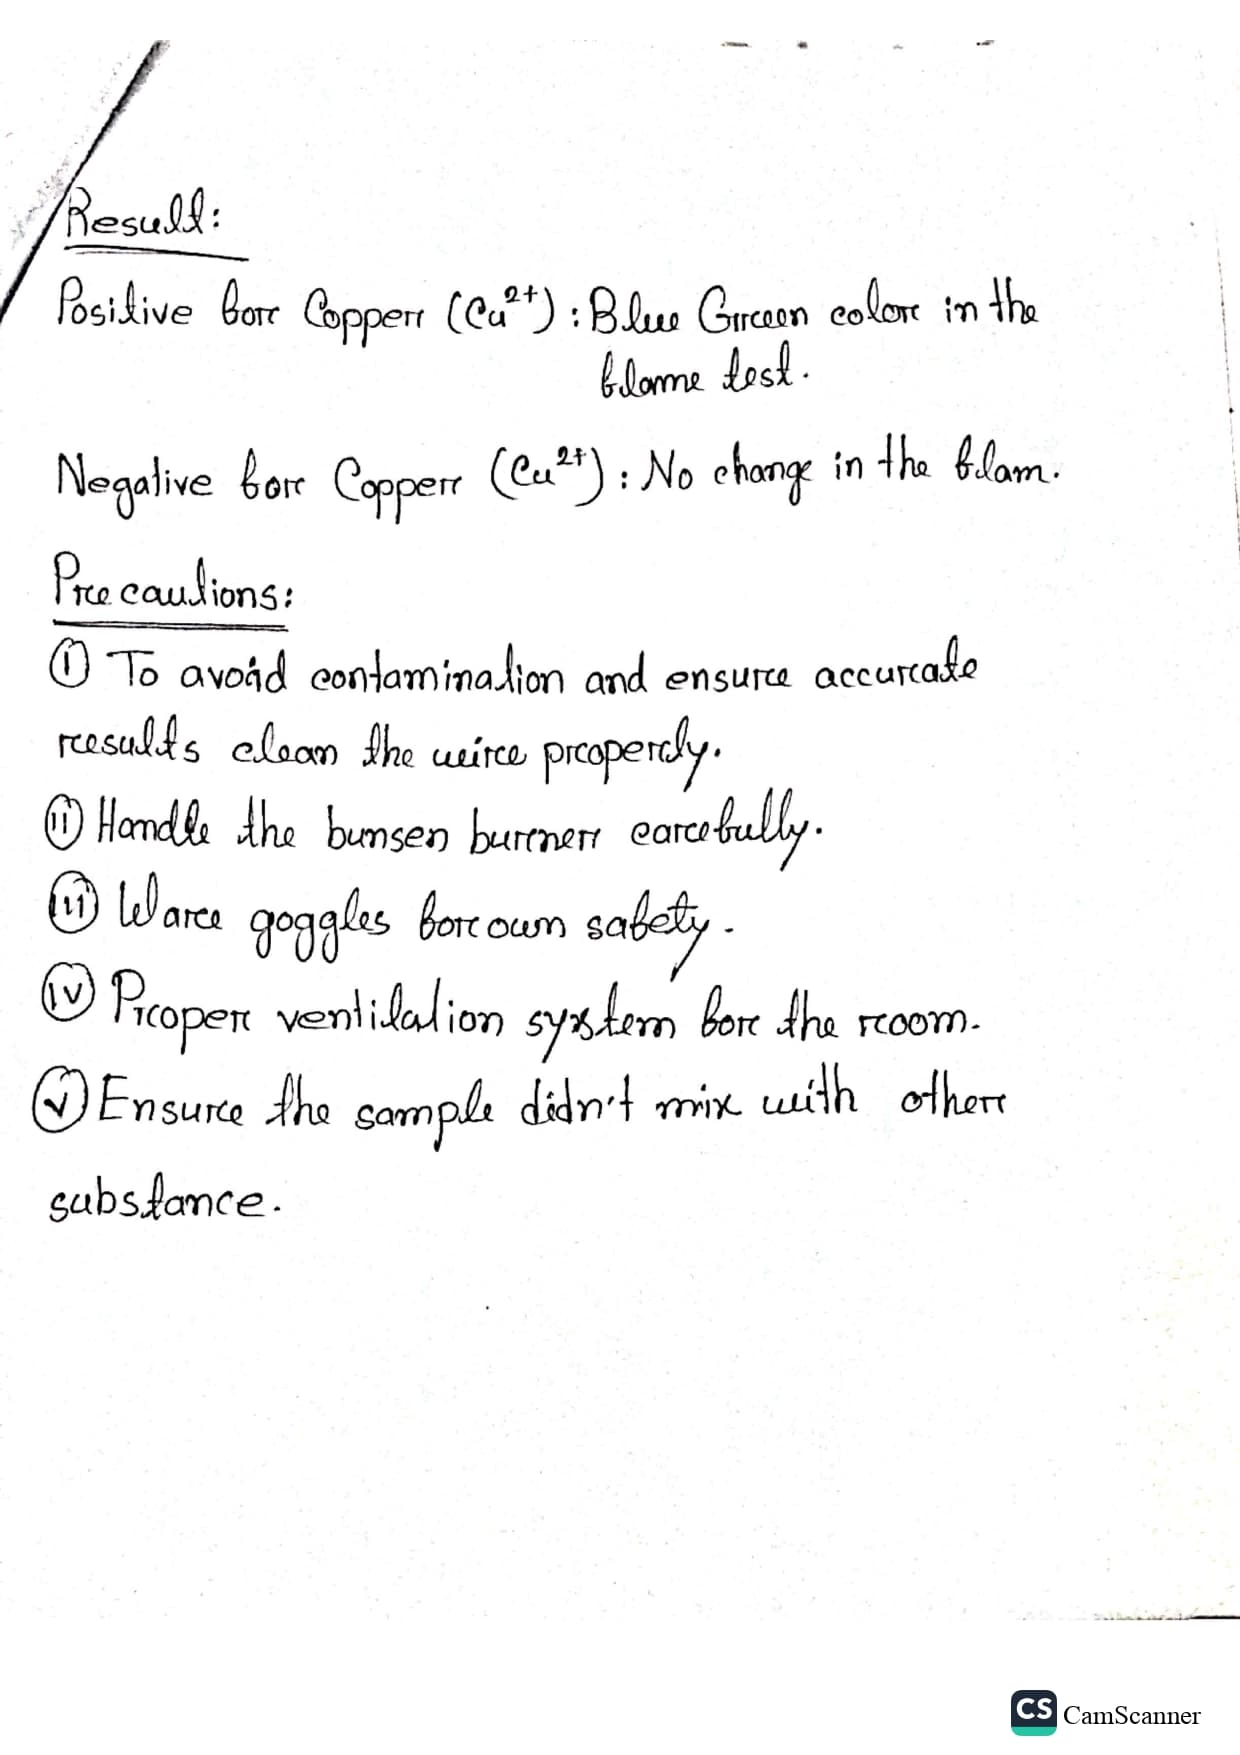 Result:
Positive for Copper (Cu²⁺) : Blue Green color in the
flame test.
Negative for Copper (Cu²⁺) : No change in the flam.
Precautions:
(i) To avoid contamination and ensure accurate
results clean the wire properly.
(ii) Handle the bunsen burner carefully.
(iii) Ware goggles for own safety.
(iv) Proper ventilation system for the room.
(v) Ensure the sample didn't mix with other
substance.
CS CamScanner